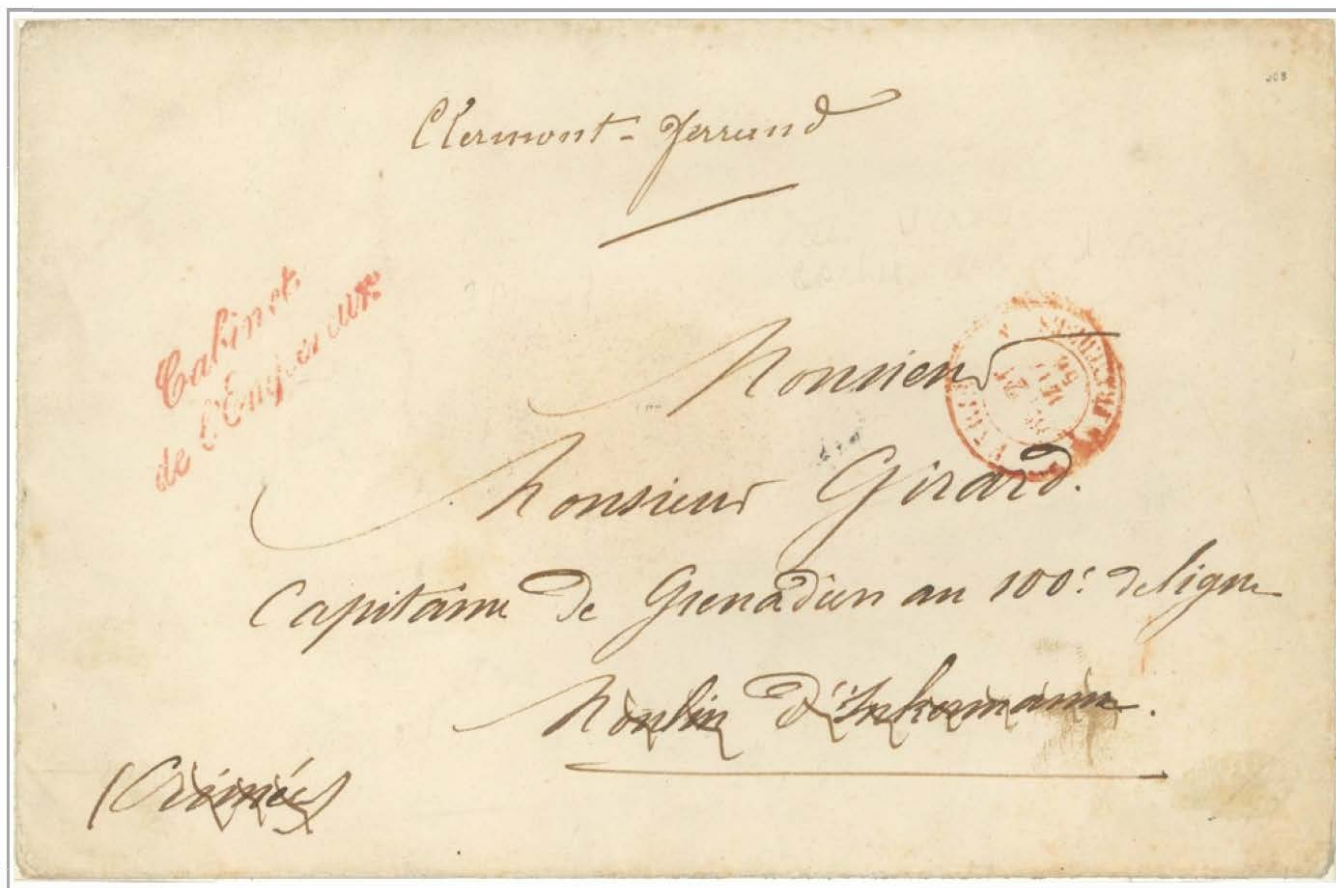 Clermont-Ferrand
Cabinet
de l'Empereur
Monsieur
Monsieur Girard.
Capitaine de Grenadiers au 100e de ligne
Moulin d'Inkermann.
(Crimée)